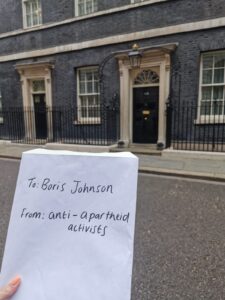 To: Boris Johnson
From: anti-apartheid
activists